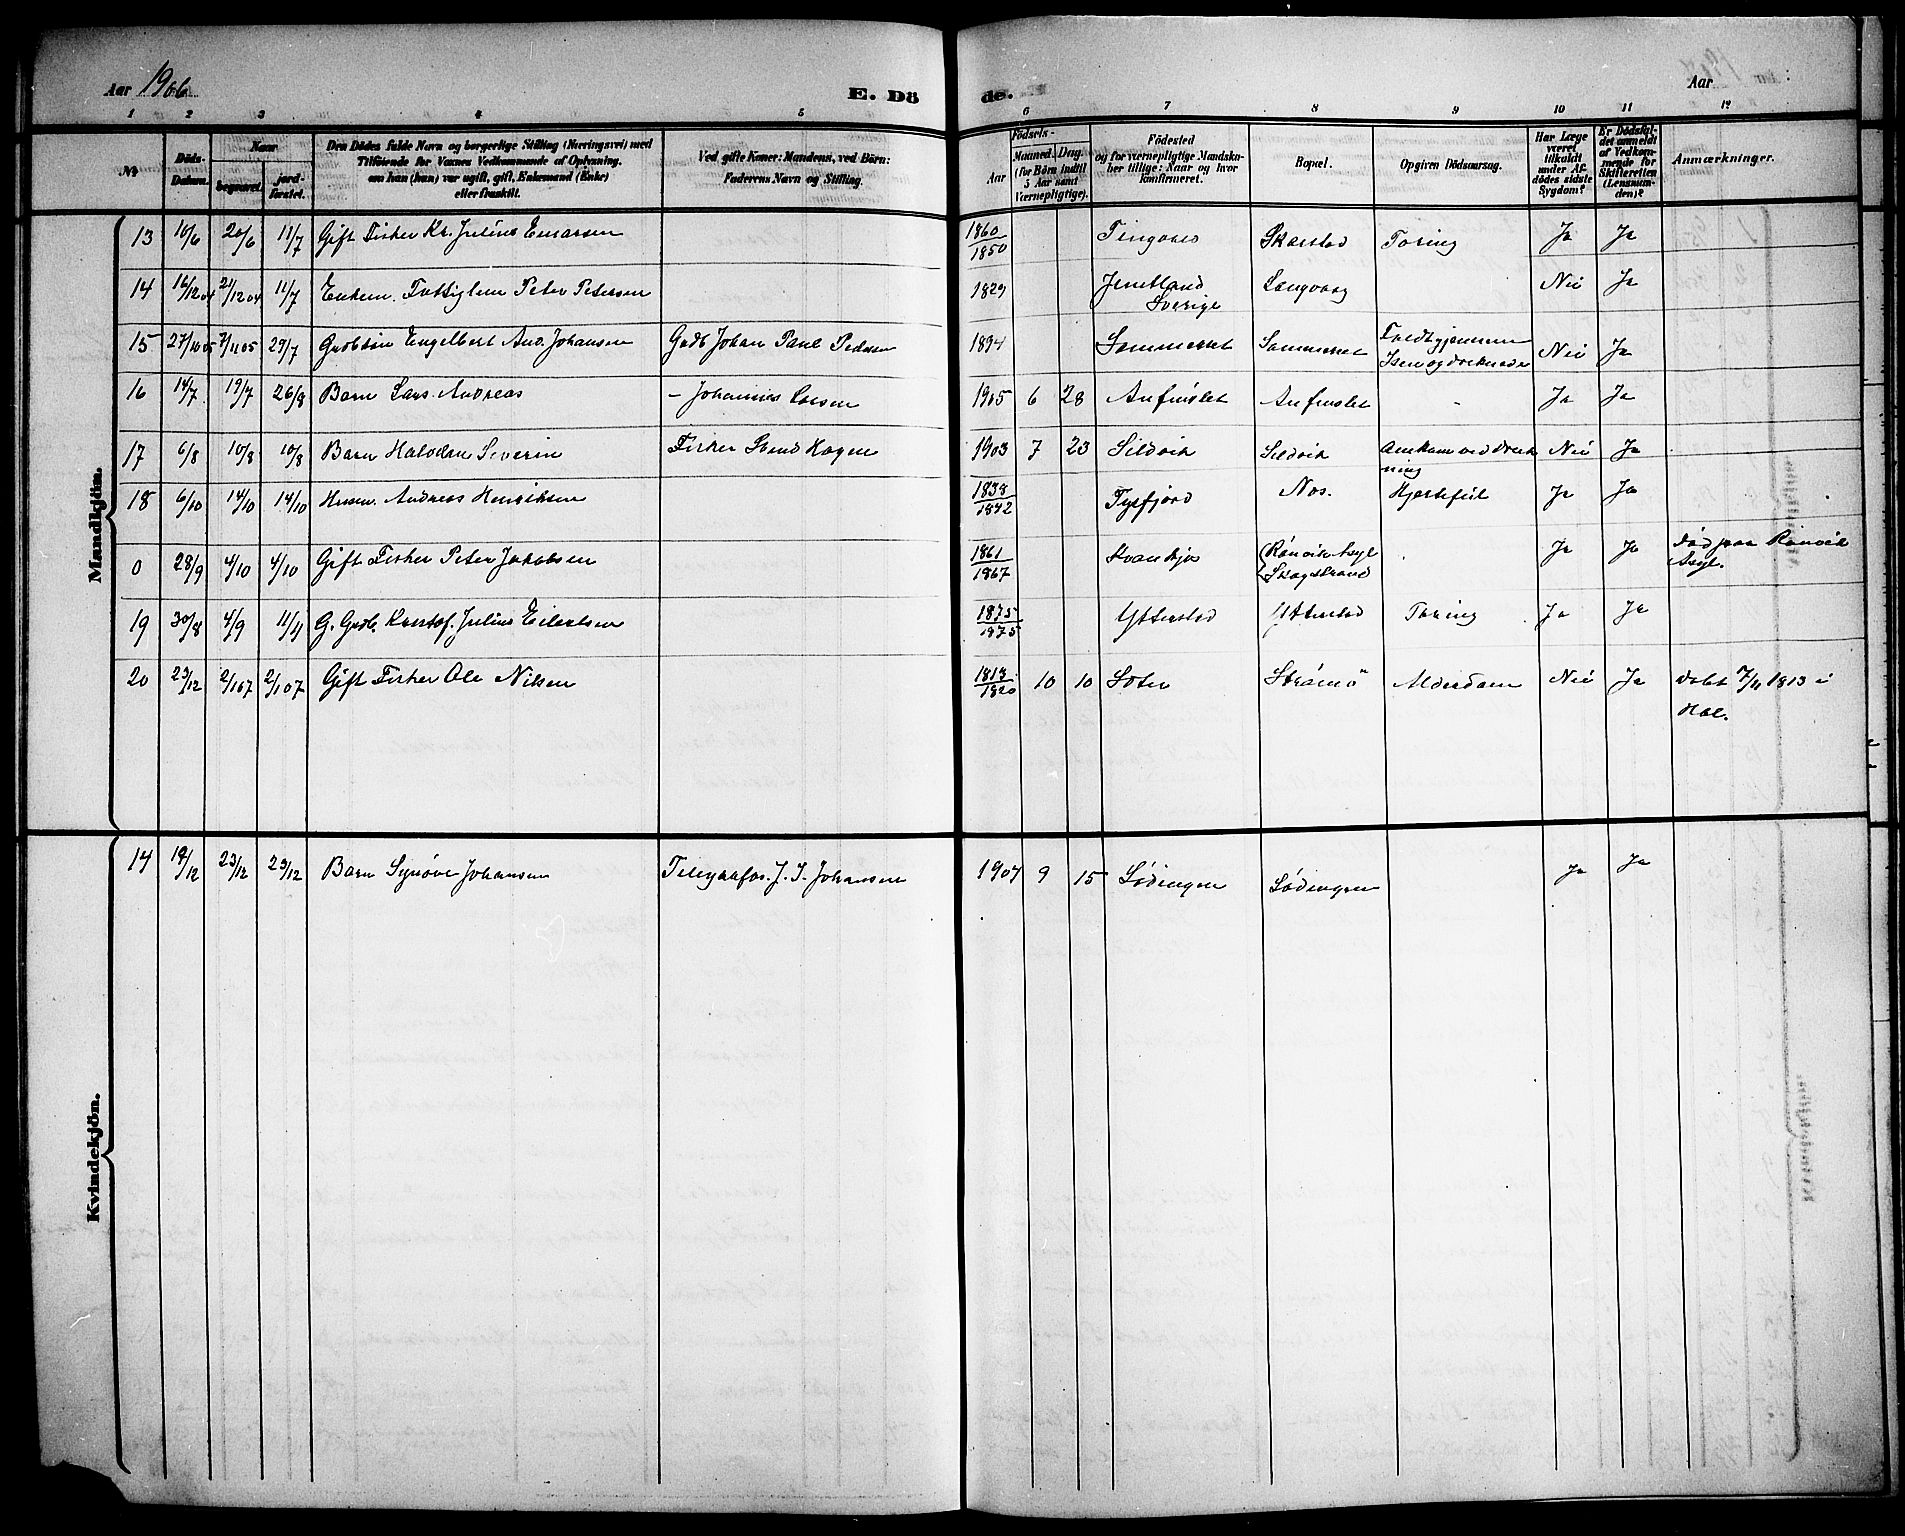 Aar 1906
E. Dö
de.
Aar
1 2 3 4 5 6 7 8 9 10 11 12
№
Døds-Datum.
Naar
begravet.
jord-fæstet.
Den Dødes fulde Navn og borgerlige Stilling (Næringsvei) med
Tilføiende for Voxnes Vedkommende af Oplysning,
om han (hun) var ugift, gift, Enkemand (Enke)
eller fraskilt.
Ved gifte Koner: Mandens, ved Børn:
Faderens Navn og Stilling.
Fødsels-
Aar
Maaned. Dag.
(for Børn indtil
5 Aar samt
Værnepligtige).
Fødested
og for værnepligtige Mandska-
ber tillige: Naar og hvor
konfirmeret.
Bopæl.
Opgiven Dødsaarsag.
Har Læge
været
tilkaldt
under Af-
dødes sidste
Sygdom?
Er Dødsfal-
det anmeldt
af Vedkom-
mende for
Skifteretten
(Lensman-
den)?
Anmærkninger.
Mandkjön.
13 16/6 20/6 11/7 Gift Fisker Kr. Julius Enarsen 1860/1850 Skarstad Tæring Ja Ja
14 16/12 04 21/12 04 11/7 Enkem. Fattiglem Peter Petersen 1829 Jemtland Sverige Langvaag Nei Ja
15 27/10 05 7/11 05 29/7 Gaardbr. søn Engelbert And. Johansen Gaardb. Johan Paul Pedersen 1894 Sommerset Sommerset Faldt gjennem Isen og druknede Nei Ja
16 14/7 19/7 26/8 Barn Lars Andreas - Johannes Larsen 1905 6 28 Anfinslet Anfinslet - Ja Ja
17 6/8 10/8 10/8 Barn Halvdan Severin Fisker Svend Hagen 1903 7 23 Sildvik Sildvik Omkom ved drukning Nei Ja
18 6/10 14/10 14/10 Husm. Andreas Henriksen 1838/1842 Tysfjord Nes. Hjertefeil Ja Ja
0 28/9 4/10 4/10 Gift Fisker Peter Jakobsen 1861/1867 Rønvik Asyl Skogstrand Ja Ja død paa Rønvik Asyl.
19 30/8 4/9 11/11 G. Gaardb. Kristof. Julius Eilertsen 1875/1875 Ytterstad Ytterstad Tæring Ja Ja
20 23/12 2/1 07 2/1 07 Gift Fisker Ole Nilsen 1813/1820 10 10 Strømø Alderdom Nei Ja døbt 7/11 1813 i Hol.
Kvindekjön.
14 19/12 23/12 23/12 Barn Synøve Johansen Telegrafas. J. I. Johansen 1904 9 15 Lødingen Lødingen Ja Ja